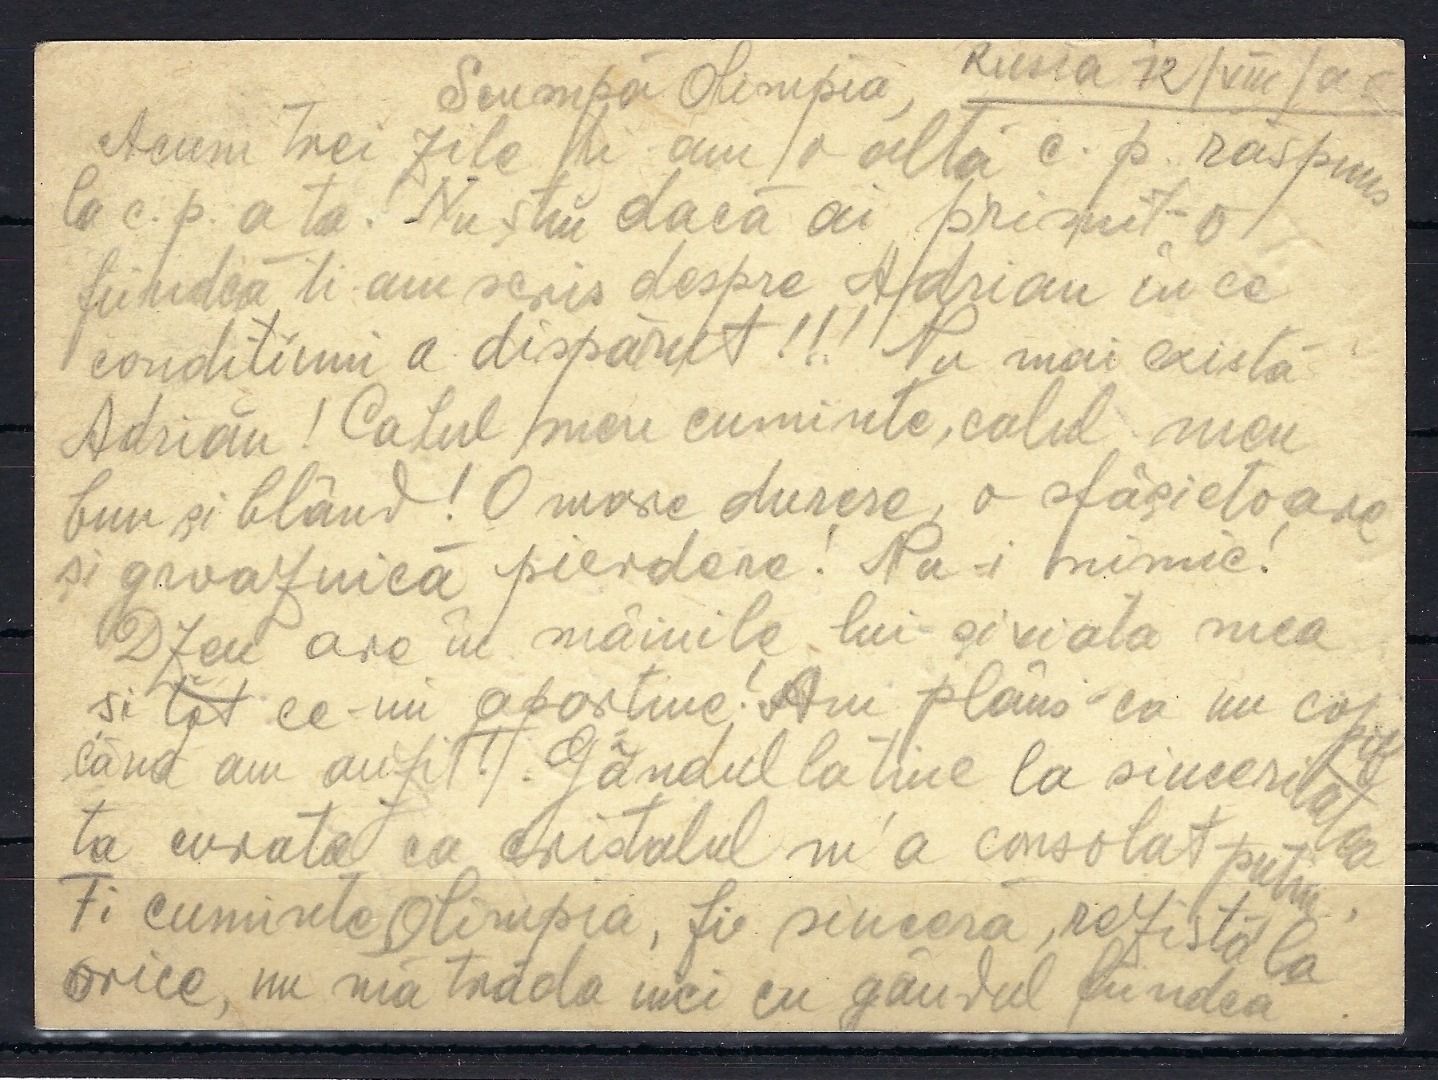 Rusia 12/VIII/a c
Scumpă Olimpia,
Acum trei zile ți am o altă c. p. răspuns
la c. p. a ta. Nu știu dacă ai primit-o
fiindcă ți-am scris despre Adrian în ce
condițiuni a dispărut!!! Nu mai există
Adrian! Calul meu cuminte, calul meu
bun și blând! O mare durere, o sfâșietoare
și groaznică pierdere! Nu-i nimic!
Dzeu are în mâinile lui și viata mea
si tot ce-mi aparține! Am plâns ca un copil
când am auzit!!. Gândul la tine la sinceritatea
ta curată ca cristalul m'a consolat puțin.
Fi cuminte Olimpia, fi sinceră, rezistă la
orice, nu mă trăda nici cu gândul fiindcă